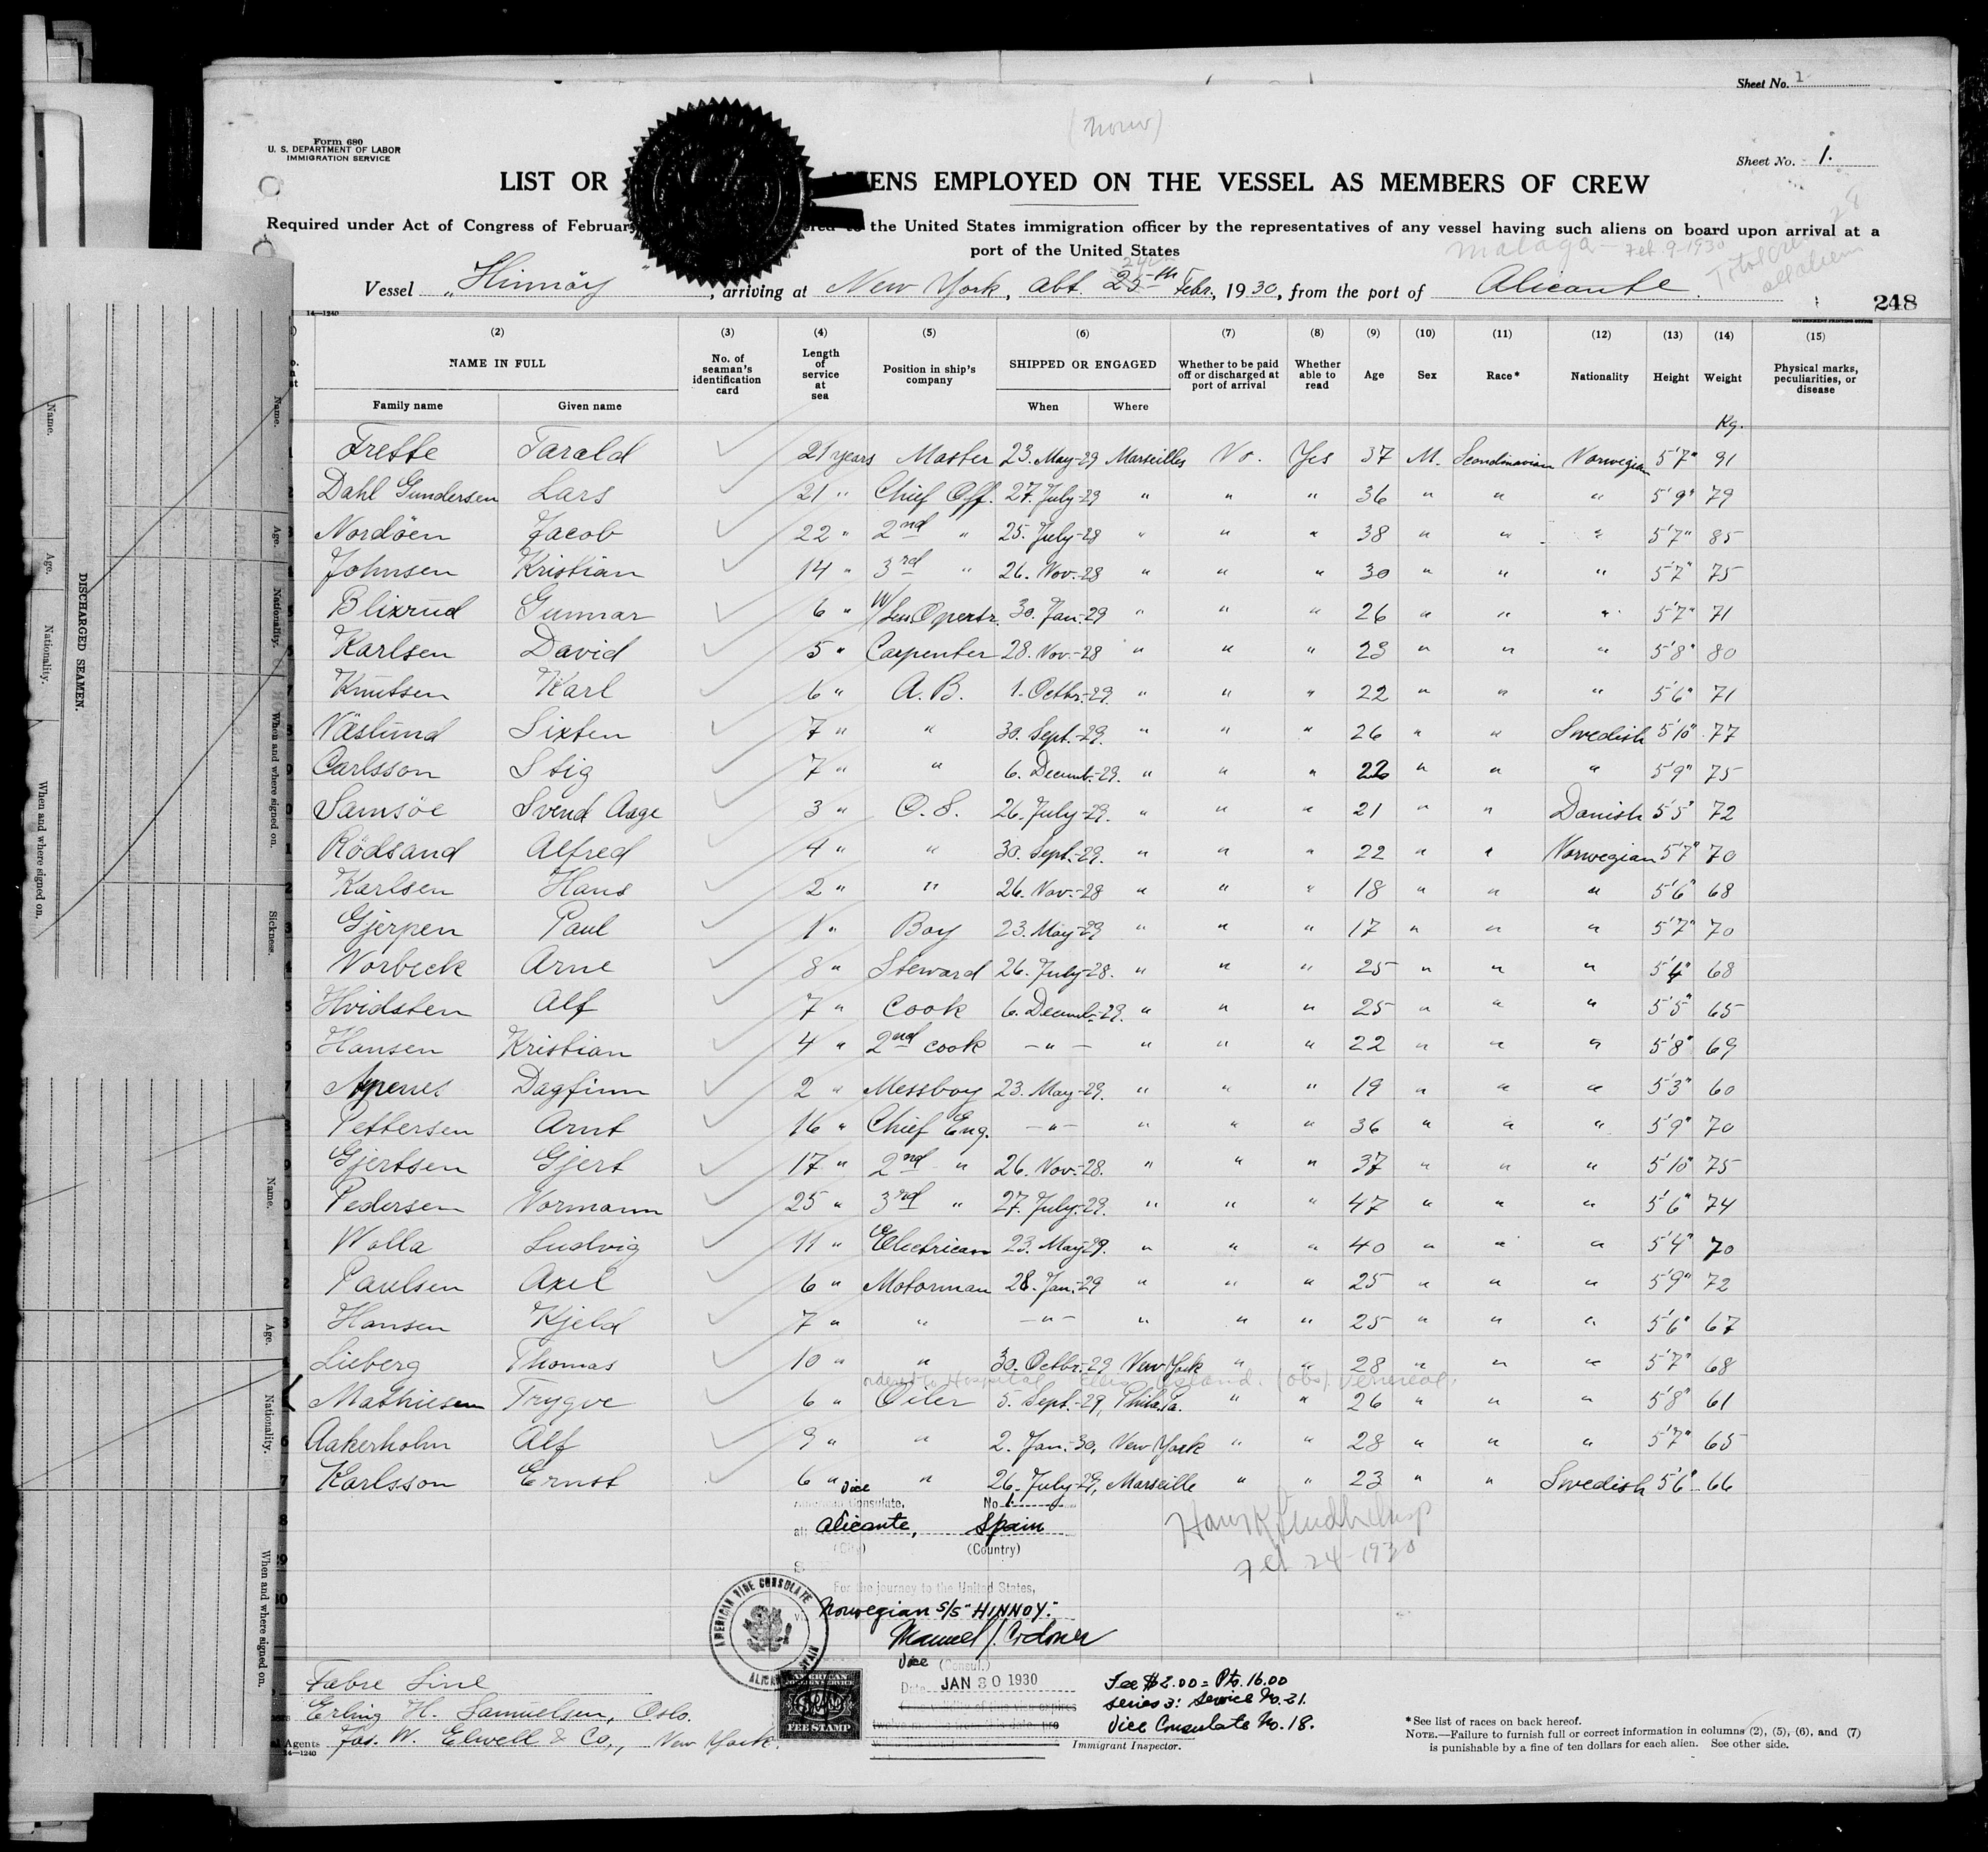 Sheet No. 1
(Norw)
Form 680
U. S. DEPARTMENT OF LABOR
IMMIGRATION SERVICE
Sheet No. 1.
LIST OR ALIENS EMPLOYED ON THE VESSEL AS MEMBERS OF CREW
Required under Act of Congress of February the United States immigration officer by the representatives of any vessel having such aliens on board upon arrival at a
port of the United States
Malaga - Feb. 9-1930
28
Total crew
all aliens
24th
Vessel "Hinnöy", arriving at New York, abt. 25th Febr., 1930, from the port of Alicante.
248
14-1240
GOVERNMENT PRINTING OFFICE
(2) (3) (4) (5) (6) (7) (8) (9) (10) (11) (12) (13) (14) (15)
NAME IN FULL No. of seaman's identification card Length of service at sea Position in ship's company SHIPPED OR ENGAGED Whether to be paid off or discharged at port of arrival Whether able to read Age Sex Race* Nationality Height Weight Physical marks, peculiarities, or disease
Family name Given name When Where
Kg.
Frette Tarald 21 years Master 23. May-29 Marseilles No. Yes 37 M. Scandinavian Norwegian 5'7" 91
Dahl Gundersen Lars 21 " Chief Off. 27. July-29 " " " 36 " " " 5'9" 79
Nordöen Jacob 22 " 2nd " 25. July-28 " " " 38 " " " 5'7" 85
Johnsen Kristian 14 " 3rd " 26. Nov.-28 " " " 30 " " " 5'7" 75
Blixrud Gunnar 6 " W/less Opertr. 30. Jan.-29 " " " 26 " " " 5'7" 71
Karlsen David 5 " Carpenter 28. Nov.-28 " " " 23 " " " 5'8" 80
Knutsen Karl 6 " A.B. 1. Octbr.-29. " " " 22 " " " 5'6" 71
Näslund Sixten 7 " " 30. Sept.-29. " " " 26 " " Swedish 5'10" 77
Carlsson Stig 7 " " 6. Decemb.-29. " " " 22 " " " 5'9" 75
Samsöe Svend Aage 3 " O.S. 26. July-29. " " " 21 " " Danish 5'5" 72
Rödsand Alfred 4 " " 30. Sept.-29. " " " 22 " " Norwegian 5'7" 70
Karlsen Hans 2 " " 26. Nov.-28 " " " 18 " " " 5'6" 68
Gjerpen Paul 1 " Boy 23. May-29 " " " 17 " " " 5'7" 70
Norbeck Arne 8 " Steward 26. July-28. " " " 25 " " " 5'4" 68
Hvidsten Alf 7 " Cook 6. Decemb.-29. " " " 25 " " " 5'5" 65
Hansen Kristian 4 " 2nd cook -"- " " " 22 " " " 5'8" 69
Apenes Dagfinn 2 " Messboy 23. May-29. " " " 19 " " " 5'3" 60
Pettersen Arnt 16 " Chief Eng. -"- " " " 36 " " " 5'9" 70
Gjertsen Gjert 17 " 2nd " 26. Nov.-28. " " " 37 " " " 5'10" 75
Pedersen Normann 25 " 3rd " 27. July-29. " " " 47 " " " 5'6" 74
Wolla Ludvig 11 " Electrican 23. May-29. " " " 40 " " " 5'4" 70
Paulsen Axel 6 " Motorman 28. Jan.-29 " " " 25 " " " 5'9" 72
Hansen Kjeld 7 " " -"- " " " 25 " " " 5'6" 67
Lieberg Thomas 10 " " 30. Octbr.-29 New York " " 28 " " " 5'7" 68
ordered to Hospital Ellis Island. (obs) Venereal.
Mathiesen Trygve 6 " Oiler 5. Sept.-29, Phila. Pa. " " 26 " " " 5'8" 61
Aakerholm Alf 9 " " 2. Jan.-30, New York " " 28 " " " 5'7" 65
Karlsson Ernst 6 " " 26. July-29, Marseille " " 23 " " Swedish 5'6" 66
Vice
American Consulate, No 1
at Alicante, Spain
(City) (Country)
Feb 24-1930
For the journey to the United States,
Norwegian S/S "HINNOY".
AMERICAN VICE CONSULATE
ALICANTE, SPAIN
Vice (Consul.)
Date JAN 30 1930
Fee $2.00 = Pts. 16.00
Series 3: Service No. 21.
Vice Consulate No. 18.
AMERICAN
FOREIGN SERVICE
FEE STAMP
Fabre Line
Erling H. Samuelsen, Oslo.
Agents Jas. W. Elwell & Co., New York.
14-1240
Immigrant Inspector.
*See list of races on back hereof.
NOTE.—Failure to furnish full or correct information in columns (2), (5), (6), and (7)
is punishable by a fine of ten dollars for each alien. See other side.
DISCHARGED SEAMEN.
Name.
Age.
Nationality.
When and where signed on.
Name.
Age.
Nationality.
When and where signed on.
Sickness.
Name.
Age.
Nationality.
When and where signed on.